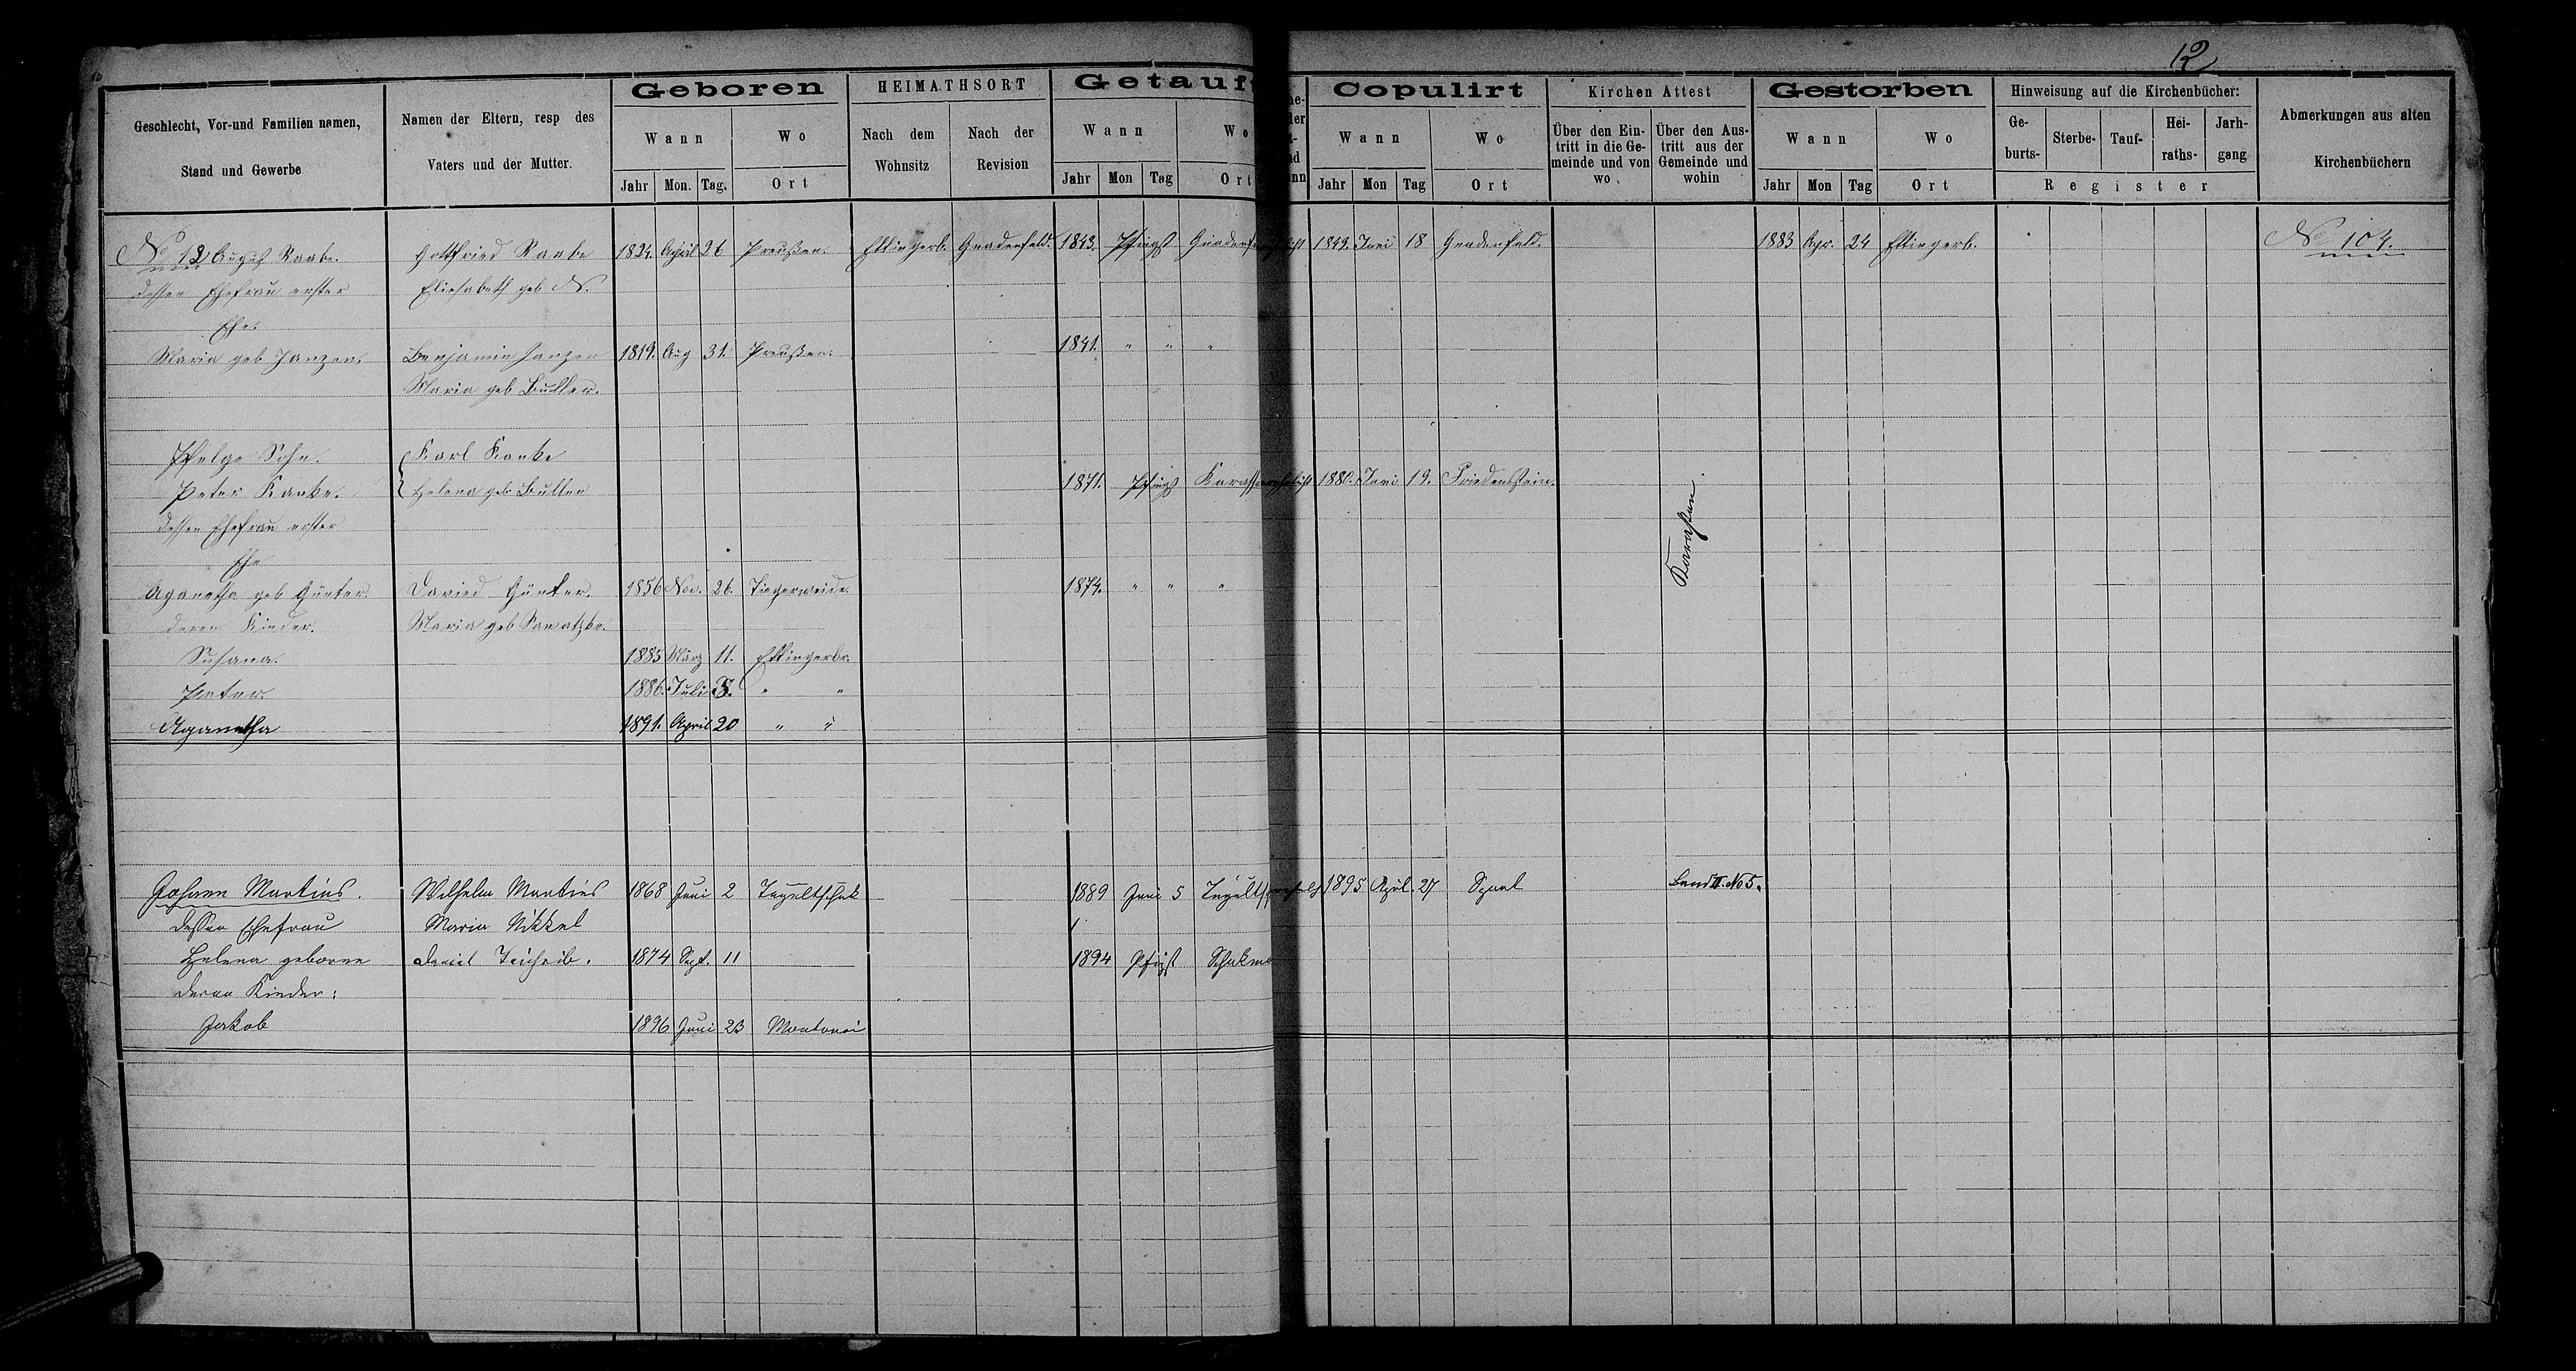 12
Geschlecht, Vor-und Familien namen, Stand und Gewerbe
Namen der Eltern, resp des Vaters und der Mutter.
Geboren
Wann
Wo
Jahr Mon. Tag. Ort
HEIMATHSORT
Nach dem Wohnsitz
Nach der Revision
Getauft
Wann
Wo
Jahr Mon Tag Ort
Copulirt
Wann
Wo
Jahr Mon Tag Ort
Kirchen Attest
Über den Eintritt in die Gemeinde und von wo
Über den Austritt aus der Gemeinde und wohin
Gestorben
Wann
Wo
Jahr Mon Tag Ort
Hinweisung auf die Kirchenbücher:
Ge-burts- Sterbe- Tauf- Hei-raths- Jarh-gang
Register
Abmerkungen aus alten Kirchenbüchern
No 12 August Raabe. Gottfried Raabe 1824. April 26 Preußen. Ettingerb. Gnadenfeld. 1843. Pfingst 1849. Juni 18 Gnadenfeld. 1883 Apr. 24 Ettingerb. No 104.
dessen Ehefrau erster Eliesabeth geb N.
Ehe.
Maria geb Janzen. Benjamin Janzen 1819. Aug 31. Preußen. 1841. " " "
Maria geb Buller.
Pfelge Sohn. Karl Kanke
Peter Kanke. Helena geb Buller 1871. Pfingst 1880. Juni 19. Friedensstein. Karassan.
dessen Ehefrau erster
Ehe
Aganetha geb Günter. David Günter. 1856 Nov. 26. Tiegerweide. 1874. " " "
deren Kinder. Maria geb Sawatzke.
Susana. 1885 März 11. Ettingerbr.
Peter. 1886. Juli 8. " "
Aganetha 1891. April 20 " "
Johann Martins. Wilhelm Martins 1868 Juni 2 1889 Juni 5 1895 April 27 Band II. No 5.
dessen Ehefrau Maria Nikkel
Helena geborne Daniel 1874 Sept. 11 1894 Pfigst
deren Kinder:
Jakob 1896 Juni 23 Montanai